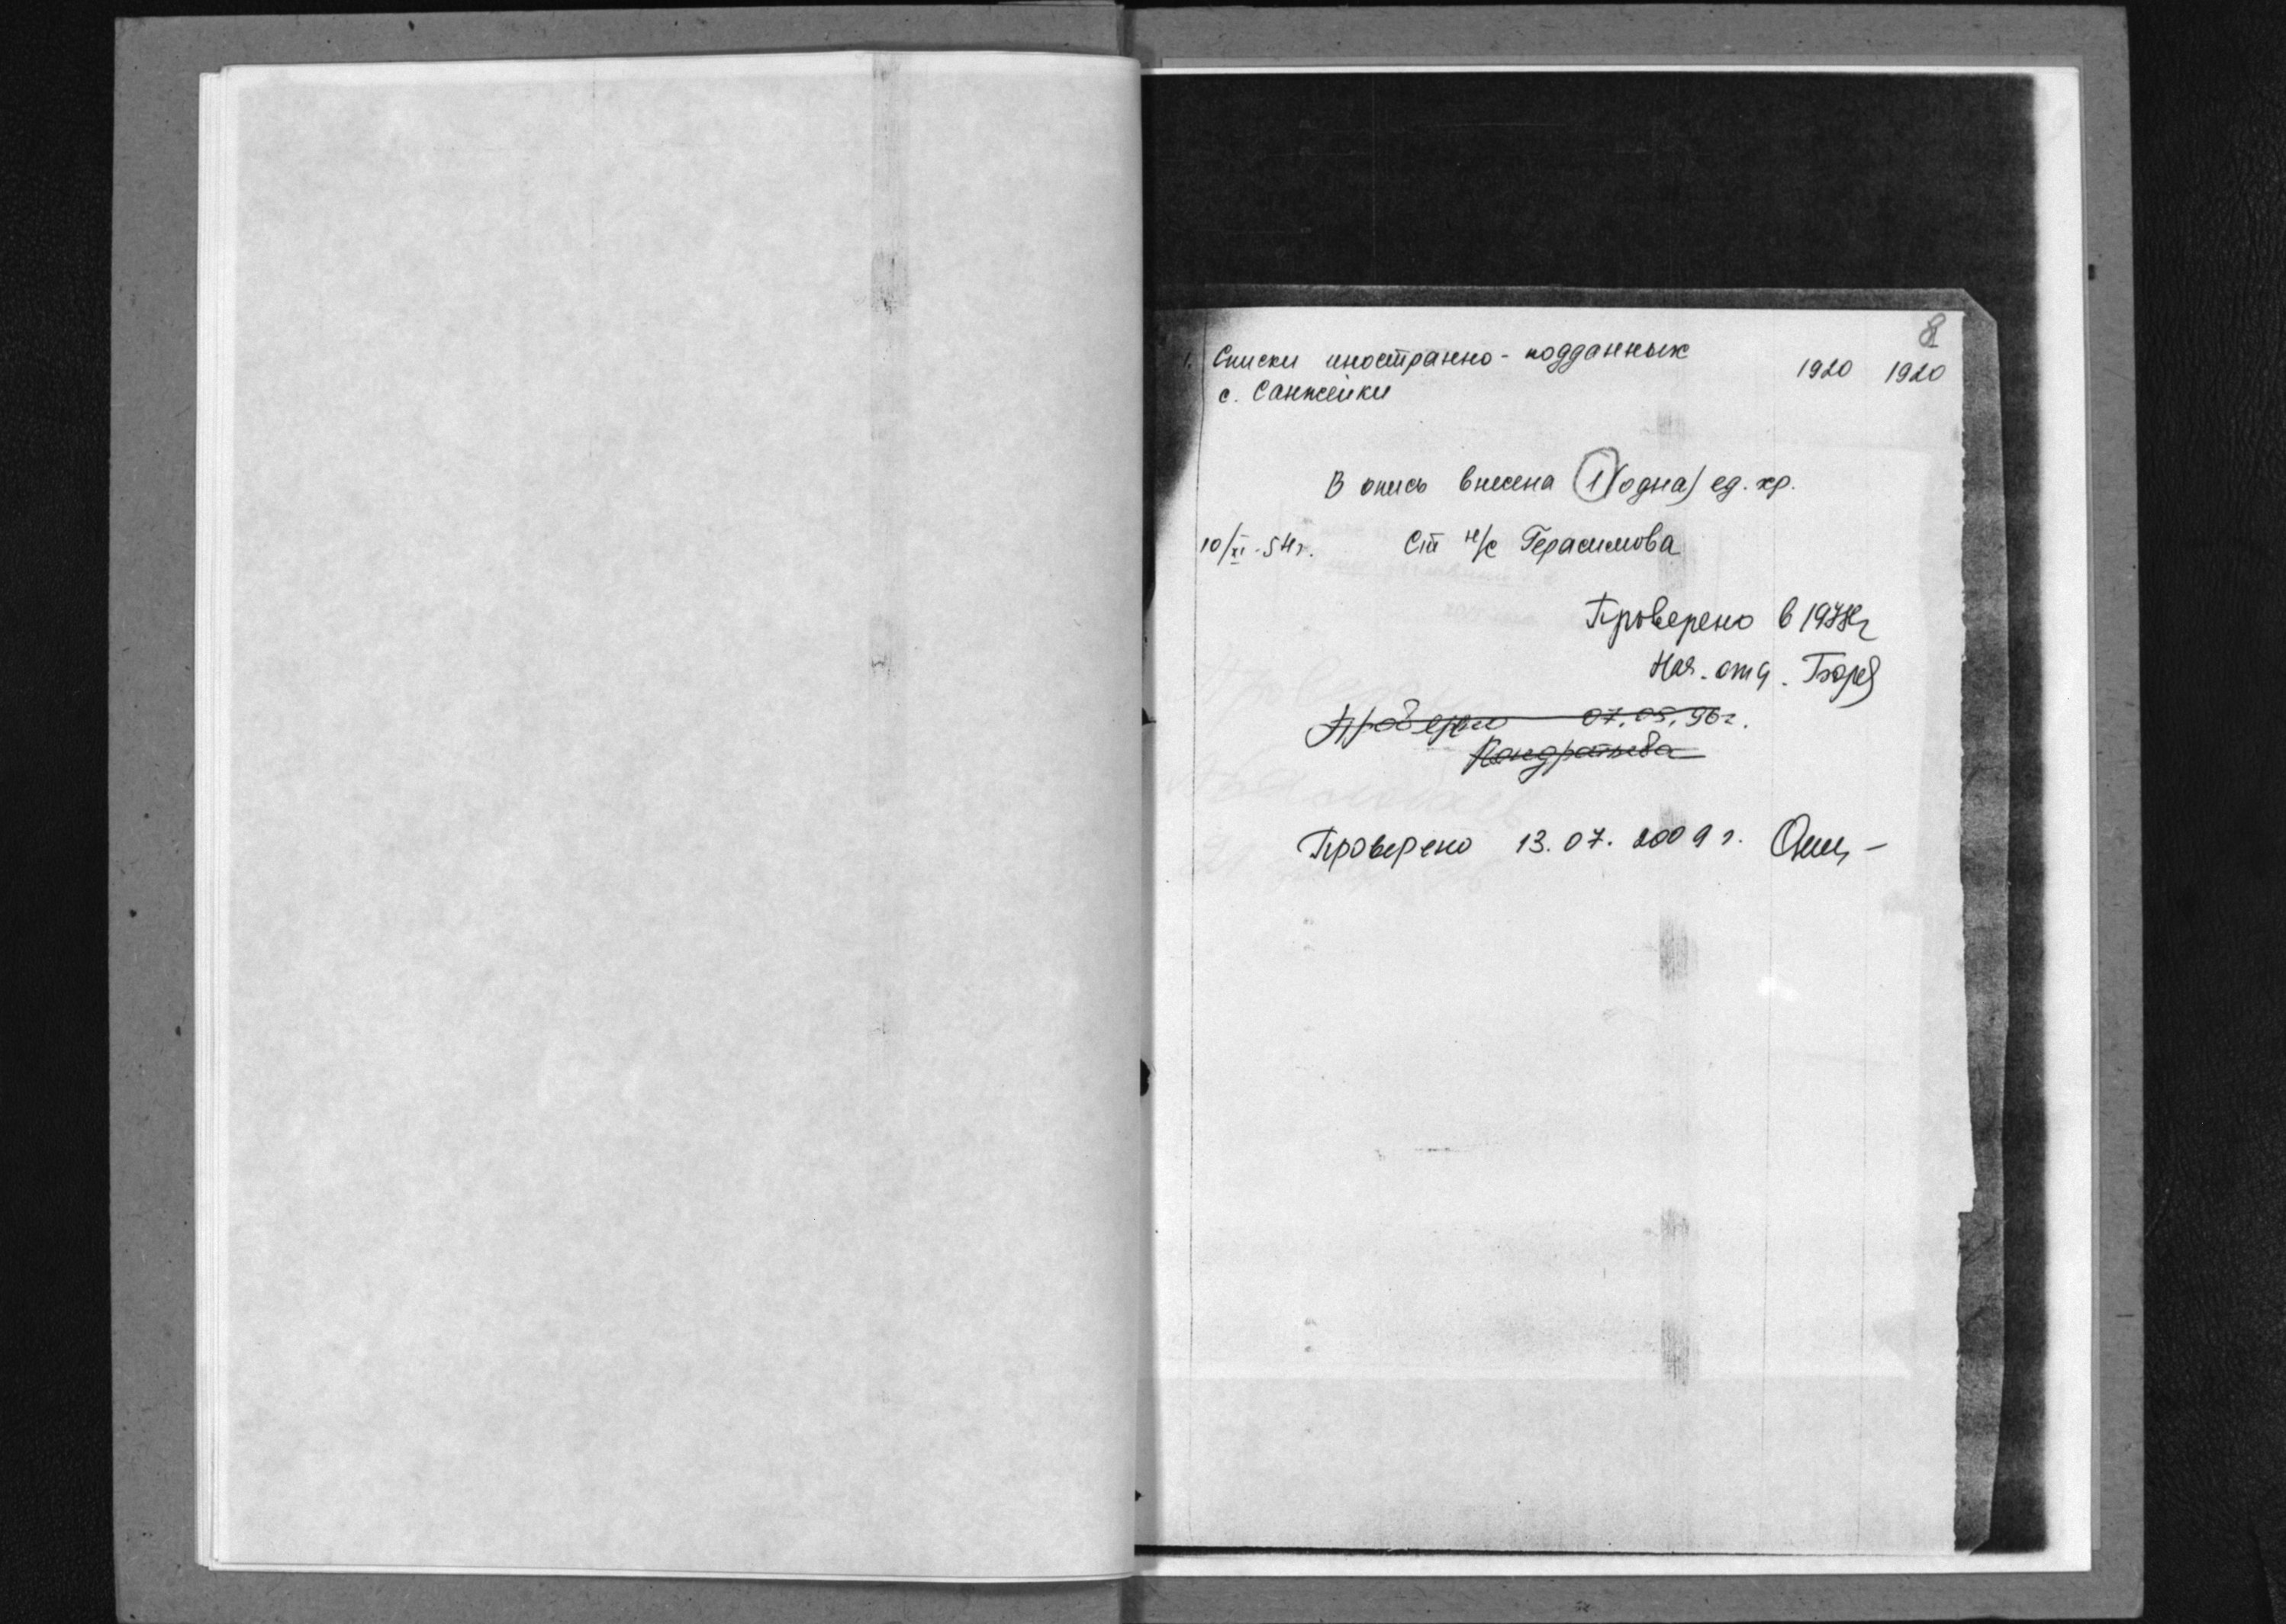 8
1. Списки иностранно-подданных 1920 1920
с. Санжейки
В опись внесена 1 (одна) ед. хр.
10/XI-54г. Ст н/с Герасимова
Проверено в 1974г
Нач. отд.
Проверено 07.05.96г.
Кондратьева
Проверено 13.07.2009 г.